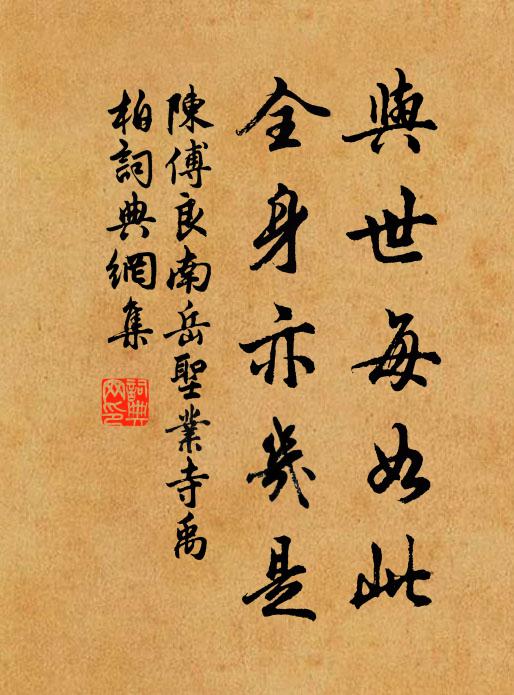 與世每如此
全身亦幾是
陳傅良南岳聖業寺禹
柏詞典網集
詞典
网印